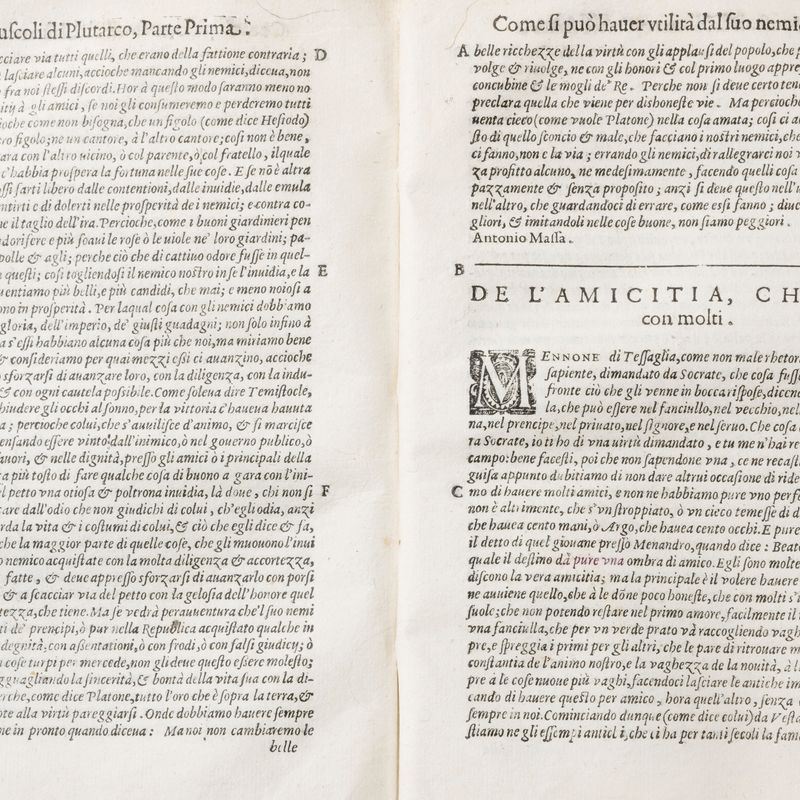 uscoli di Plutarco, Parte Prima.
cciare via tutti quelli, che erano della fattione contraria; D
lasciare alcuni, accioche mancando gli nemici, diceua, non
fra noi stessi discordi. Hor à questo modo saranno meno no
ità à gli amici, se noi gli consumeremo e perderemo tutti
cioche come non bisogna, che un figolo (come dice Hesiodo)
ro figolo; ne un cantore, à l'altro cantore; cosi non è bene,
ara con l'altro uicino, ò col parente, ò col fratello, ilquale
c'habbia prospera la fortuna nelle sue cose. E se nō è altra
ssi farti libero dalle contentioni, dalle inuidie, dalle emula
ntirti e di dolerti nelle prosperità de i nemici; e contra co-
ue il taglio dell'ira. Percioche, come i buoni giardinieri pen
dorifere e più soaui le rose ò le uiole ne' loro giardini; pa-
polle & agli; perche ciò che di cattiuo odore fusse in quel-
questi; cosi togliendosi il nemico nostro in se l'inuidia, e la E
uentiamo più belli, e più candidi, che mai; e meno noiosi a
ono in prosperità. Per laqual cosa con gli nemici dobbiamo
gloria, dell'imperio, de' giusti guadagni; non solo infino à
a s'essi habbiano alcuna cosa più che noi, ma miriamo bene
& consideriamo per quai mezzi essi ci auanzino, accioche
sforzarsi di auanzare loro, con la diligenza, con la indu-
& con ogni cautela possibile. Come soleua dire Temistocle,
hiudere gli occhi al sonno, per la vittoria c'haueua hauuta
a; percioche colui, che s'auuilisce d'animo, & si marcisce
ensando essere vinto dall'inimico, ò nel gouerno publico, ò
auori, & nelle dignità, presso gli amici ò i principali della
a più tosto di fare qualche cosa di buono a gara con l'ini-
l petto vna otiosa & poltrona inuidia, là doue, chi non si F
care dall'odio che non giudichi di colui, ch'egli odia, anzi
rda la vita & i costumi di colui, & ciò che egli dice & fa,
che la maggior parte di quelle cose, che gli muouono l'inui
o nemico acquistate con la molta diligenza & accortezza,
fatte, & deue appresso sforzarsi di auanzarlo con porsi
& a scacciar via del petto con la gelosia dell'honore quel
tezza, che tiene. Ma se vedrà perauuentura che'l suo nemi
ti de' prencipi, ò pur nella Republica acquistato qualche in
degnità, con assentationi, ò con frodi, ò con falsi giudicij; ò
cose turpi per mercede, non gli deue questo essere molesto;
gguagliando la sincerità, & bontà della vita sua con la di-
erche, come dice Platone, tutto l'oro che è sopra la terra, &
ote alla virtù pareggiarsi. Onde dobbiamo hauere sempre
ne in pronto quando diceua: Ma noi non cambiaremo le
belle
Come si può hauer vtilità dal suo nemic
A belle ricchezze della virtù con gli applausi del popolo, che p
volge & riuolge, ne con gli honori & col primo luogo appre
concubine & le mogli de' Re. Perche non si deue certo tene
preclara quella che viene per dishoneste vie. Ma percioche
uenta cieco (come vuole Platone) nella cosa amata; cosi ci ac
sto di quello sconcio & male, che facciano i nostri nemici, che
ci fanno, non è la via; errando gli nemici, di rallegrarci noi
za profitto alcuno, ne medesimamente, facendo quelli cosa
pazzamente & senza proposito; anzi si deue questo nell'u
nell'altro, che guardandoci di errare, come essi fanno; diue
gliori, & imitandoli nelle cose buone, non siamo peggiori.
Antonio Massa.
B
DE L'AMICITIA, CH
con molti.
MENNONE di Tessaglia, come non male rhetor
sapiente, dimandato da Socrate, che cosa fuss
fronte ciò che gli venne in bocca rispose, dicen
la, che può essere nel fanciullo, nel vecchio, nel
na, nel prencipe, nel priuato, nel signore, e nel seruo. Che cosa
ra Socrate, io ti ho di vna uirtù dimandato, e tu me n'hai re
campo: bene facesti, poi che non sapendone vna, ce ne recast
guisa appunto dubitiamo di non dare altrui occasione di ride
C mo di hauere molti amici, e non ne habbiamo pure vno perf
non è altrimente, che s'vn stroppiato, ò vn cieco temesse di d
che hauea cento mani, ò Argo, che hauea cento occhi. E pure
il detto di quel giouane presso Menandro, quando dice: Beato
quale il destino dà pure vna ombra di amico. Egli sono molte
discono la vera amicitia; ma la principale è il volere hauere
ne auuiene quello, che à le dōne poco honeste, che con molti s'i
suole; che non potendo restare nel primo amore, facilmente il
vna fanciulla, che per vn verde prato và raccogliendo vagh
pre, e spreggia i primi per gli altri, che le pare di ritrouare m
constantia de l'animo nostro, e la vaghezza de la nouità, à l
pre à le cose nuoue più vaghi, facendoci lasciare le antiche im
cando di hauere questo per amico, hora quell'altro, senza
sempre in noi. Cominciando dunque (come dice colui) da Vesta
stiamo ne gli essempi antichi, che ci ha per tanti secoli la fam